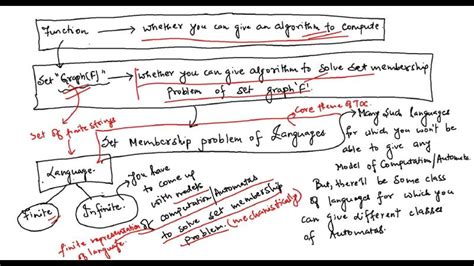 Function → whether you can give an algorithm to compute
Set "Graph(F)" → whether you can give algorithm to solve set membership
problem of set graph 'F'.
Set of finite strings
Core theme of TOC.
Set Membership problem of Languages
Language.
Finite
Infinite.
finite representation of
of language
You have
to come up
with models
computation/Automatas
to solve set membership
Problem. (mechanistically)
Many such languages
for which you won't be
able to give any
Model of Computation/Automata.
But, there'll be some class
of languages for which you
can give different classes
of Automatas.